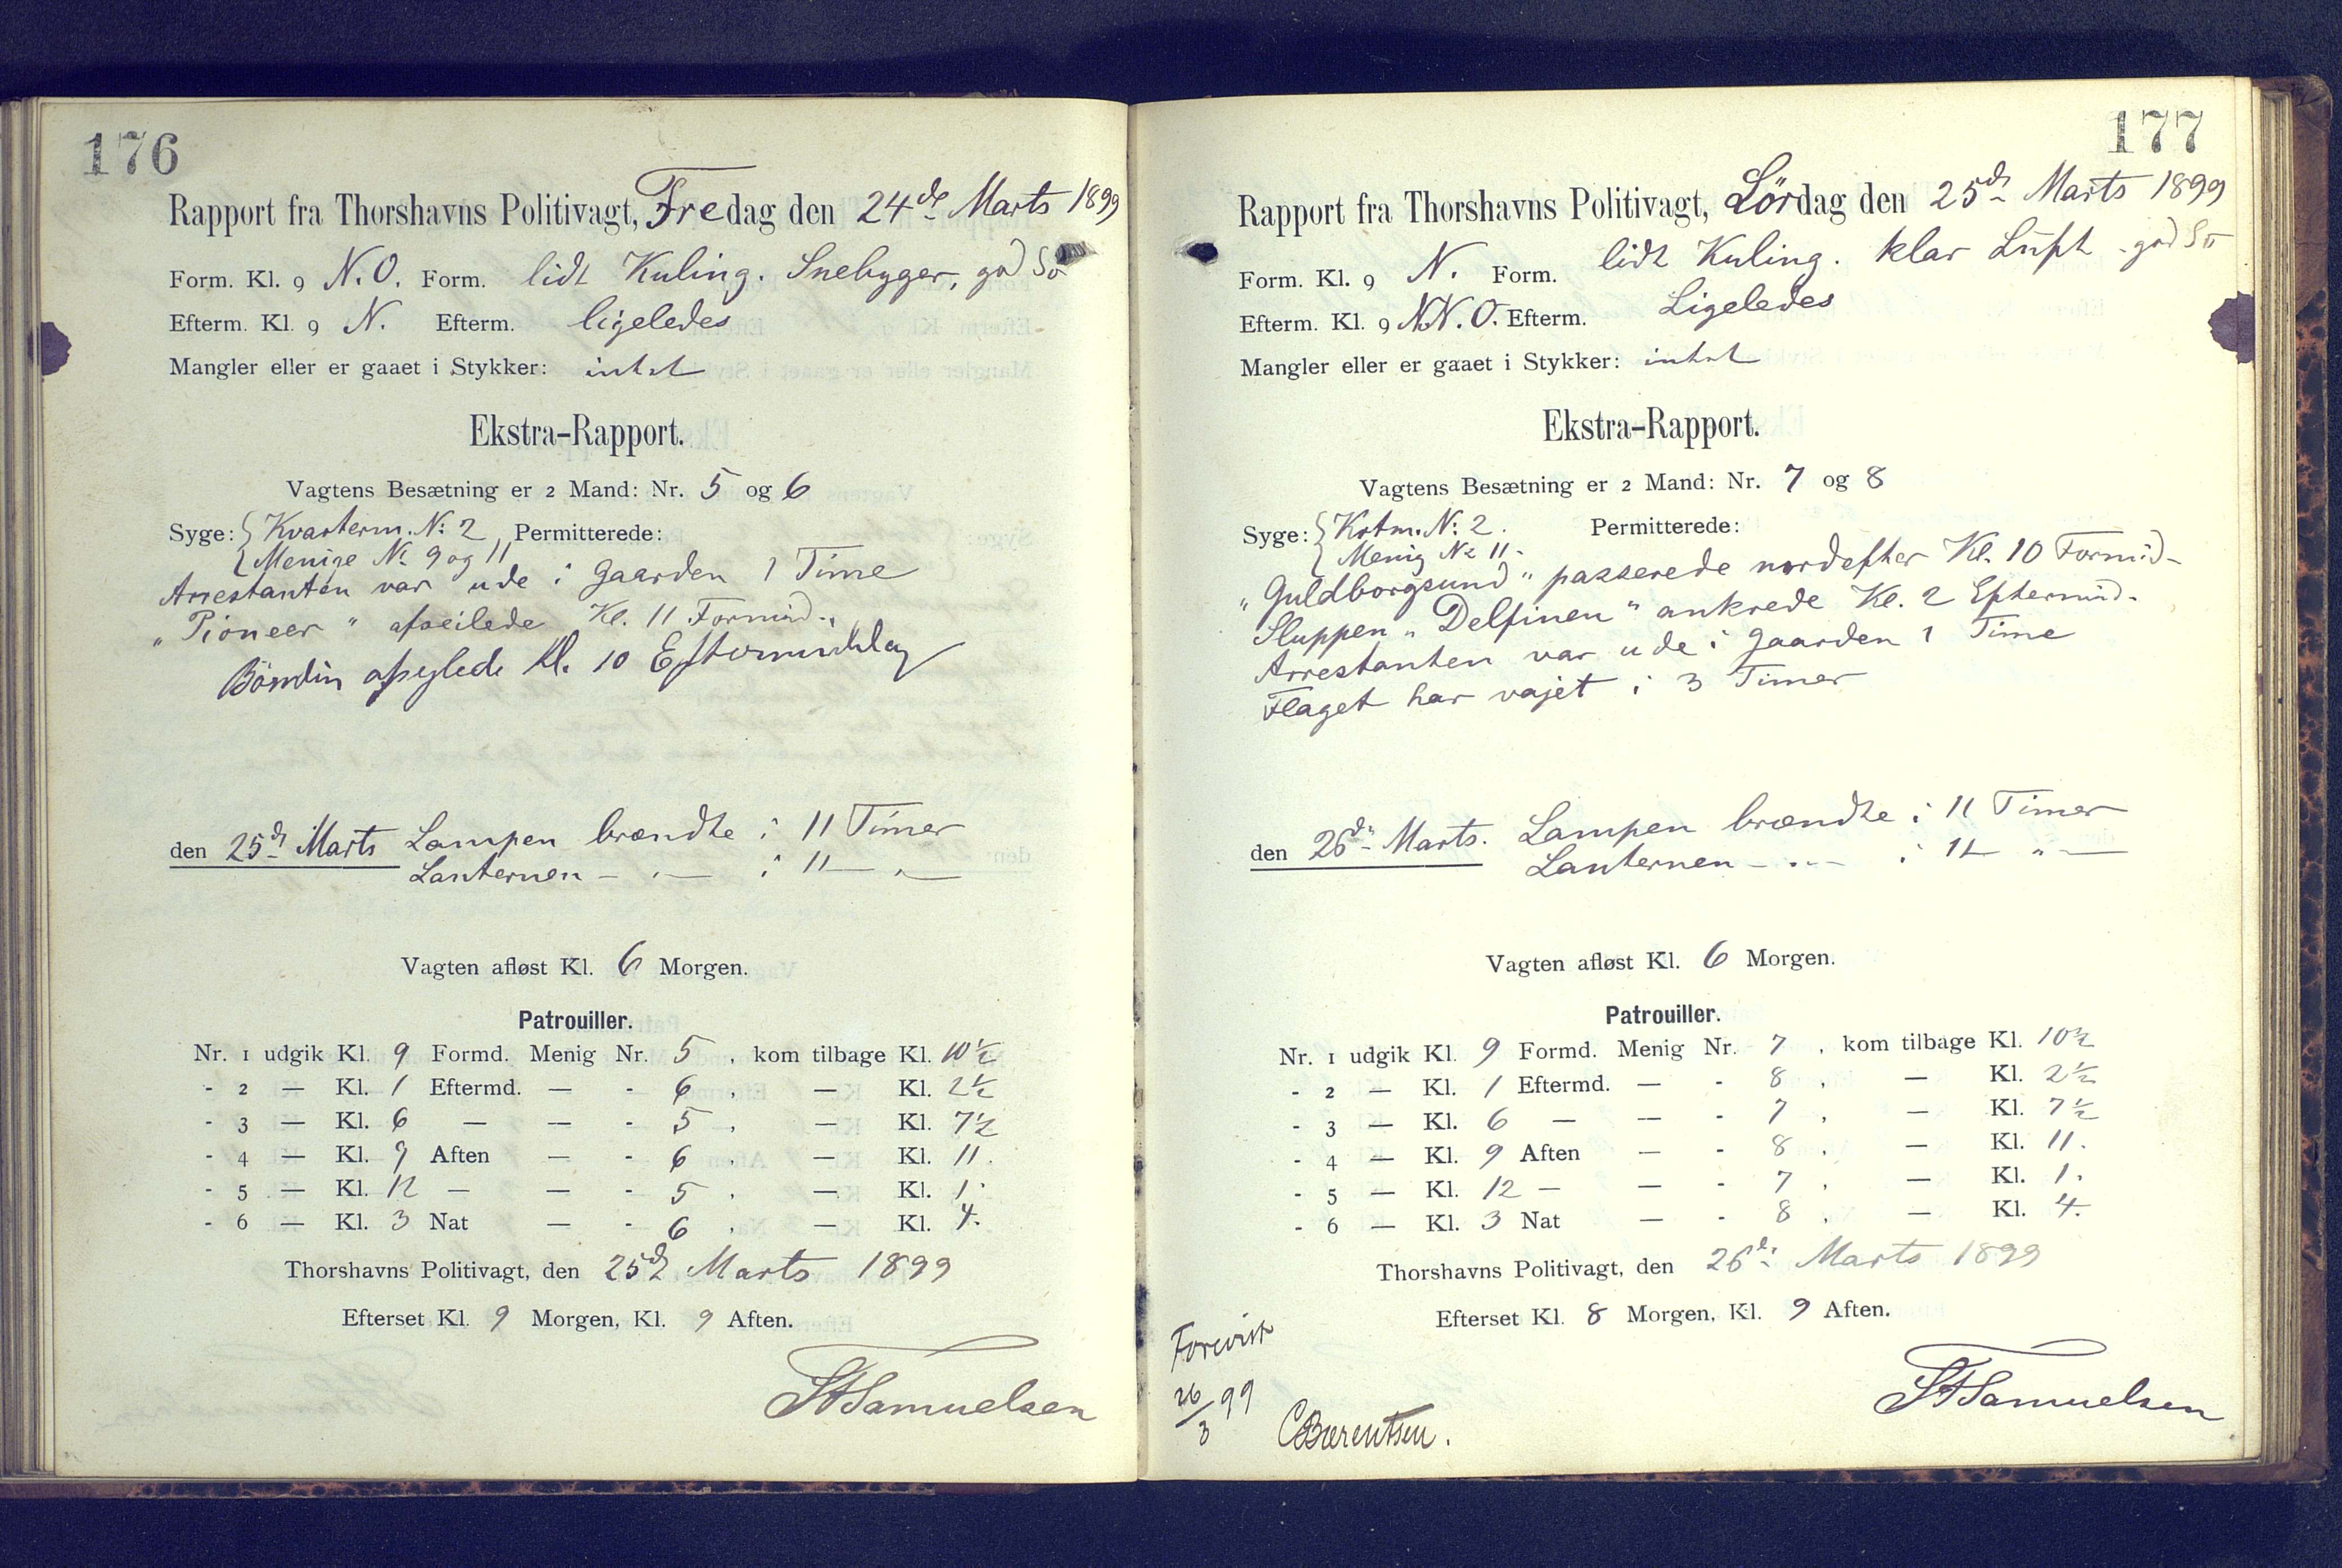 176
Rapport fra Thorshavns Politivagt, Fredag den 24de Marts 1899
Form. Kl. 9 N.O. Form. lidt Kuling. Snebyger, god Sö
Efterm. Kl. 9 N. Efterm. ligeledes
Mangler eller er gaaet i Stykker: intet
Ekstra-Rapport.
Vagtens Besætning er 2 Mand: Nr. 5 og 6
Syge: Kvarterm. No 2 Permitterede:
Menige No 9 og 11
Arrestanten var ude i Gaarden 1 Time
"Pioneer" afseilede Kl. 11 Formid.
afseglede Kl. 10 Eftermiddag
den 25de Marts Lampen brændte i 11 Timer
Lanternen - " - i 11 - " -
Vagten afløst Kl. 6 Morgen.
Patrouiller.
Nr. 1 udgik Kl. 9 Formd. Menig Nr. 5, kom tilbage Kl. 10½
- 2 — Kl. 1 Eftermd. — - 6, — Kl. 2½
- 3 — Kl. 6 — — - 5, — Kl. 7½
- 4 — Kl. 9 Aften — - 6, — Kl. 11.
- 5 — Kl. 12 — — - 5, — Kl. 1.
- 6 — Kl. 3 Nat — - 6, — Kl. 4.
Thorshavns Politivagt, den 25de Marts 1899
Efterset Kl. 9 Morgen, Kl. 9 Aften.
Samuelsen
177
Rapport fra Thorshavns Politivagt, Lördag den 25de Marts 1899
Form. Kl. 9 N. Form. lidt Kuling. klar Luft. god Sö
Efterm. Kl. 9 N.N.O. Efterm. Ligeledes
Mangler eller er gaaet i Stykker: intet
Ekstra-Rapport.
Vagtens Besætning er 2 Mand: Nr. 7 og 8
Syge: Krtm. No 2. Permitterede:
Menig No 11.
"Guldborgsund" passerede nordefter Kl. 10 Formid-
Sluppen "Delfinen" ankrede Kl. 2 Eftermid-
Arrestanten var ude i Gaarden 1 Time
Flaget har vajet i 3 Timer
den 26de Marts. Lampen brændte i 11 Timer
Lanternen - " - i 11 " -
Vagten afløst Kl. 6 Morgen.
Patrouiller.
Nr. 1 udgik Kl. 9 Formd. Menig Nr. 7, kom tilbage Kl. 10½
- 2 — Kl. 1 Eftermd. — - 8, — Kl. 2½
- 3 — Kl. 6 — — - 7, — Kl. 7½
- 4 — Kl. 9 Aften — - 8, — Kl. 11.
- 5 — Kl. 12 — — - 7, — Kl. 1.
- 6 — Kl. 3 Nat — - 8, — Kl. 4.
Thorshavns Politivagt, den 26de Marts 1899
Efterset Kl. 8 Morgen, Kl. 9 Aften.
Samuelsen
Forevist
26/3 99
CBærentsen.